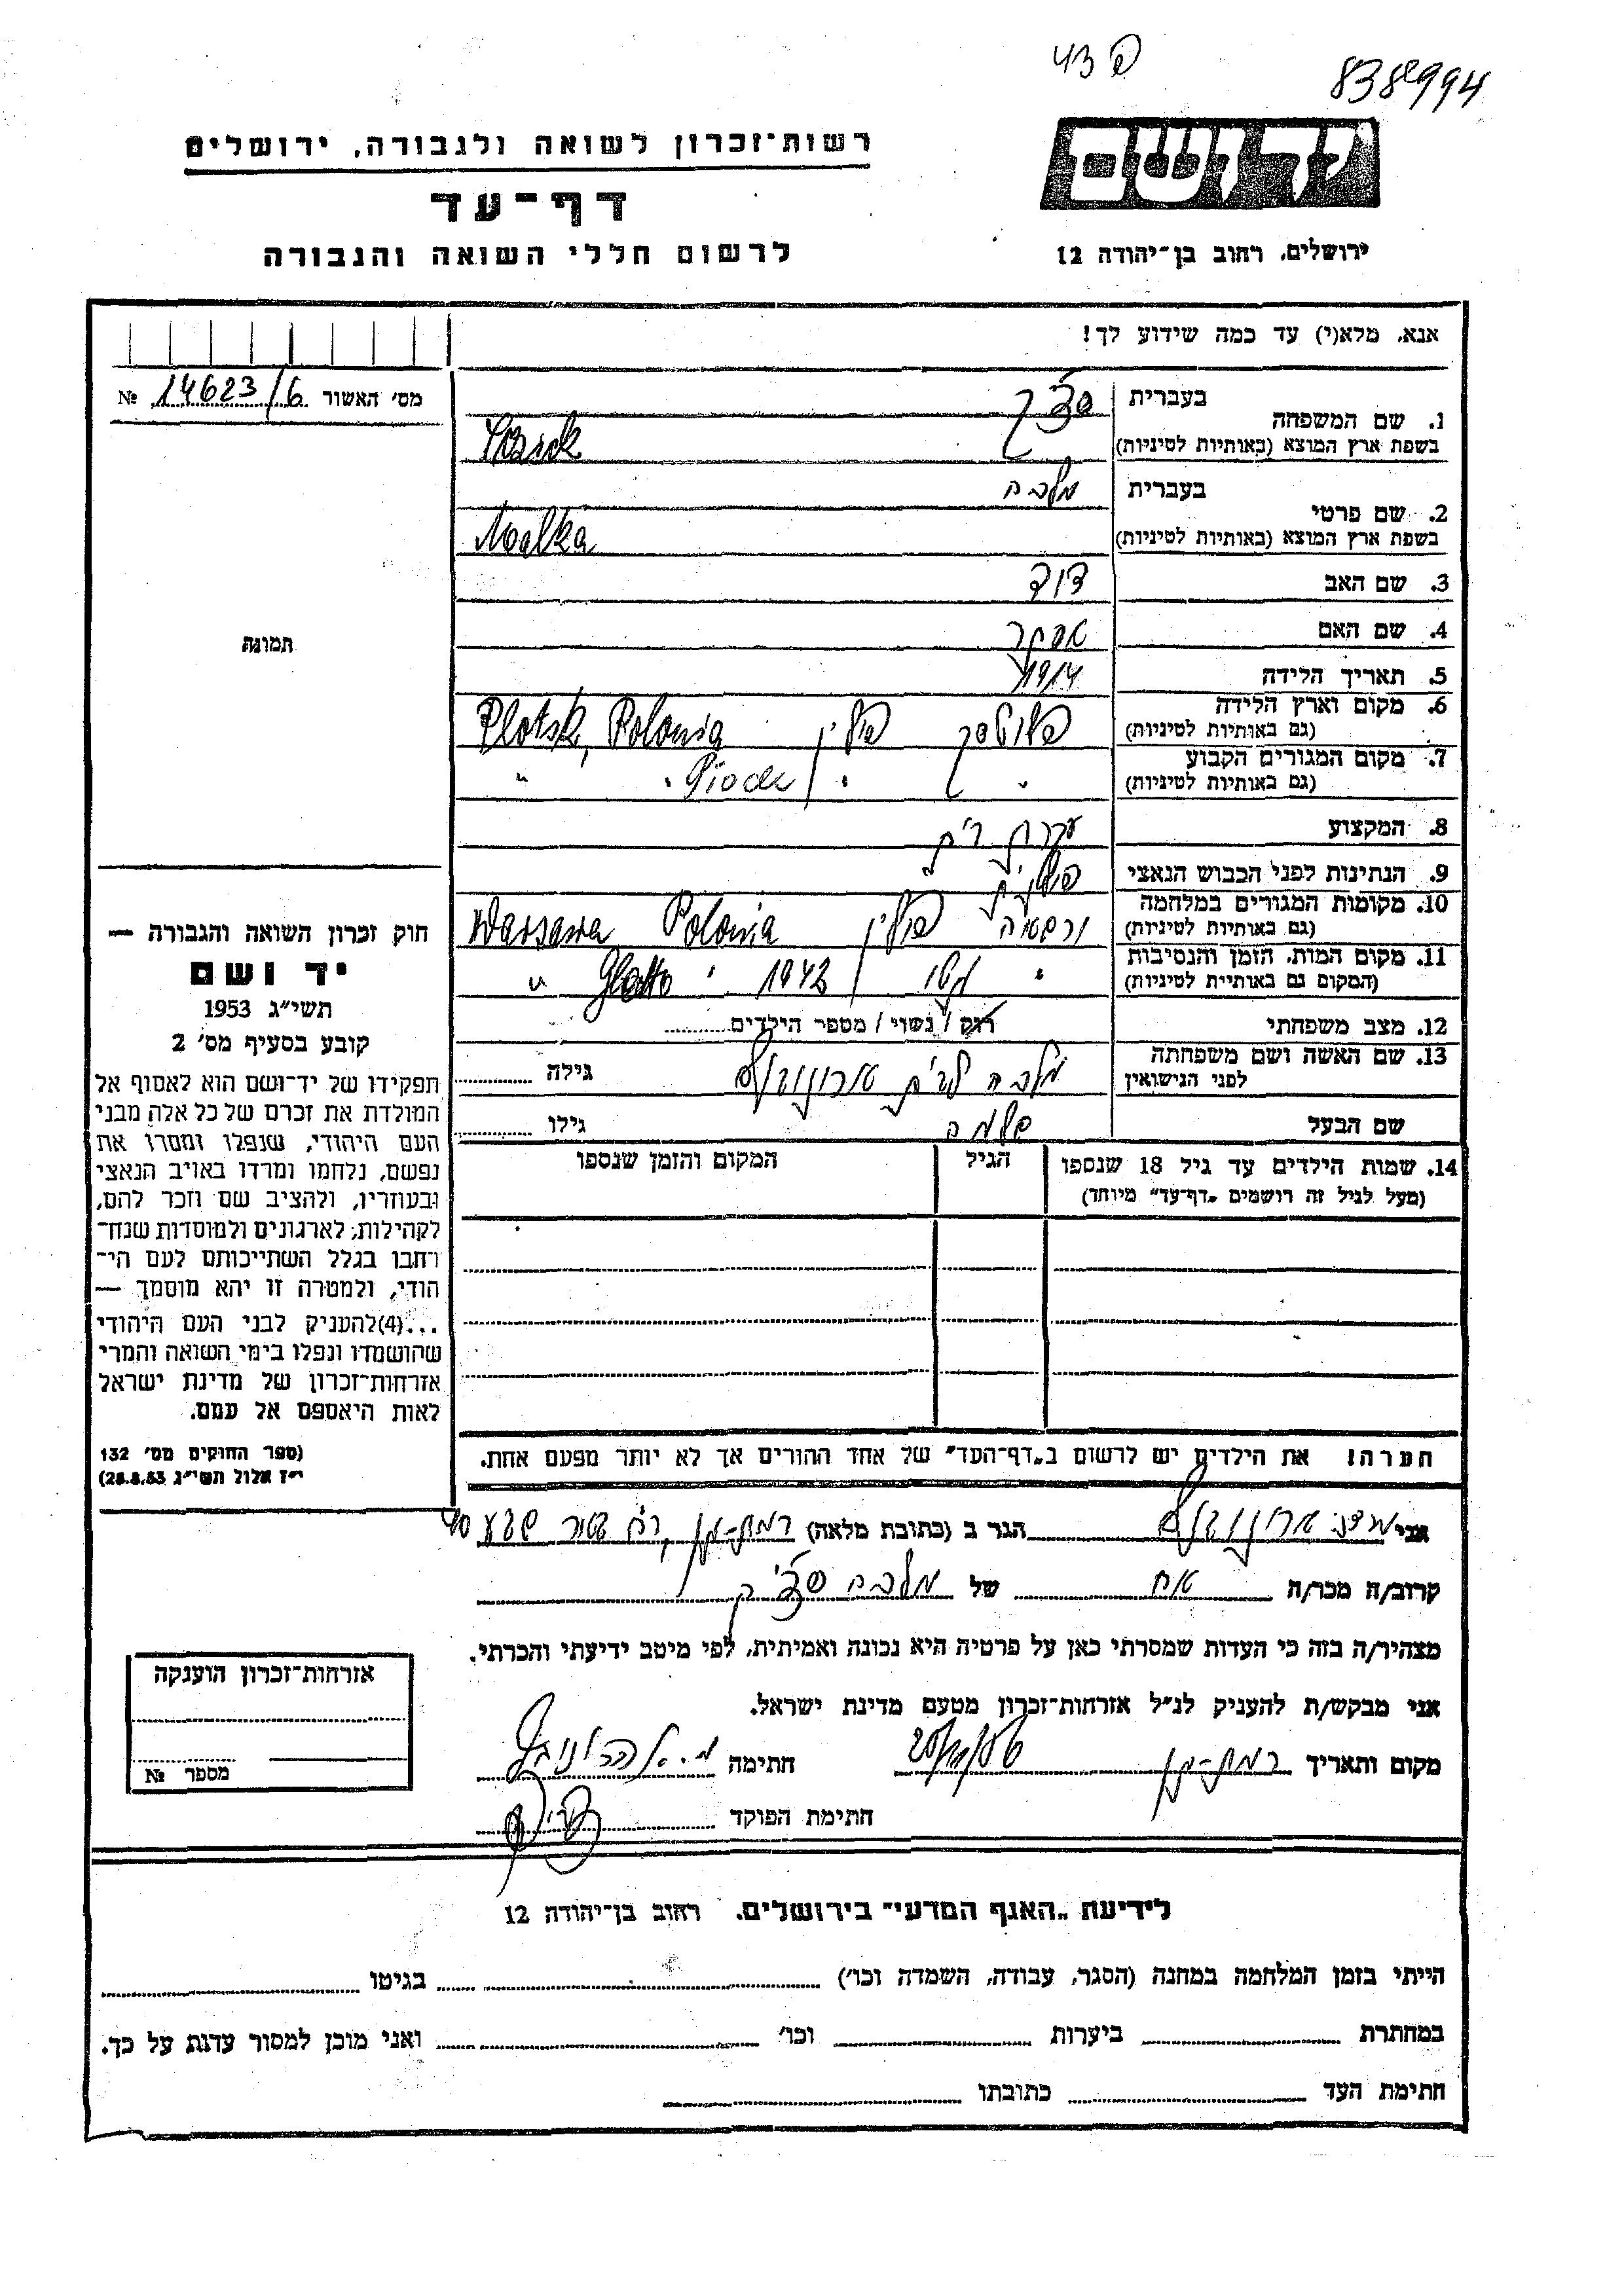 פ 43
8388994
רשות־זכרון לשואה ולגבורה, ירושלים
דף־עד
לרשום חללי השואה והגבורה
יד ושם
ירושלים, רחוב בן־יהודה 12
אנא, מלא(י) עד כמה שידוע לך!
מס׳ האשור № 14623/6
תמונה
1. שם המשפחה
בעברית
בשפת ארץ המוצא (באותיות לטיניות)
2. שם פרטי
בעברית מלכה
בשפת ארץ המוצא (באותיות לטיניות) Malka
3. שם האב דוד
4. שם האם אסתר
5. תאריך הלידה 1914
6. מקום וארץ הלידה
(גם באותיות לטיניות) פלוטסק פולין Plotsk, Polonia
7. מקום המגורים הקבוע
(גם באותיות לטיניות) " " "
8. המקצוע עקרת בית
9. הנתינות לפני הכבוש הנאצי פולנית
10. מקומות המגורים במלחמה
(גם באותיות לטיניות) ורשה פולין Polonia Warsawa
11. מקום המות, הזמן והנסיבות
(המקום גם באותיית לטיניות) " גטו 1942 " Ghetto "
12. מצב משפחתי רוק / נשוי / מספר הילדים
13. שם האשה ושם משפחתה
לפני הנישואין מלכה לבית אהרונוביץ גילה
שם הבעל שלמה גילו
14. שמות הילדים עד גיל 18 שנספו
(מעל לגיל זה רושמים „דף־עד״ מיוחד)
הגיל
המקום והזמן שנספו
הערה! את הילדים יש לרשום ב„דף־העד״ של אחד ההורים אך לא יותר מפעם אחת.
חוק זכרון השואה והגבורה —
יד ושם
תשי״ג 1953
קובע בסעיף מס׳ 2
תפקידו של יד־ושם הוא לאסוף אל
המולדת את זכרם של כל אלה מבני
העם היהודי, שנפלו ומסרו את
נפשם, נלחמו ומרדו באויב הנאצי
ובעוזריו, ולהציב שם וזכר להם,
לקהילות, לארגונים ולמוסדות שנח־
רחבו בגלל השתייכותם לעם הי־
הודי, ולמטרה זו יהא מוסמך —
...(4)להעניק לבני העם היהודי
שהושמדו ונפלו בימי השואה והמרי
אזרחות־זכרון של מדינת ישראל
לאות היאספם אל עמם.
(ספר החוקים מס׳ 132
י״ז אלול תשי״ג 28.8.53)
אני אהרונוביץ הגר ב (כתובת מלאה) רמת-גן, רח
קרוב/ה מכר/ה אח של מלכה
מצהיר/ה בזה כי העדות שמסרתי כאן על פרטיה היא נכונה ואמיתית, לפי מיטב ידיעתי והכרתי.
אני מבקש/ת להעניק לנ״ל אזרחות־זכרון מטעם מדינת ישראל.
מקום ותאריך רמת-גן חתימה
חתימת הפוקד
אזרחות־זכרון הוענקה
מספר №
לידיעת „האגף המדעי״ בירושלים, רחוב בן־יהודה 12
הייתי בזמן המלחמה במחנה (הסגר, עבודה, השמדה וכו׳) בגיטו
במחתרת ביערות וכו׳ ואני מוכן למסור עדות על כך.
חתימת העד כתובתו